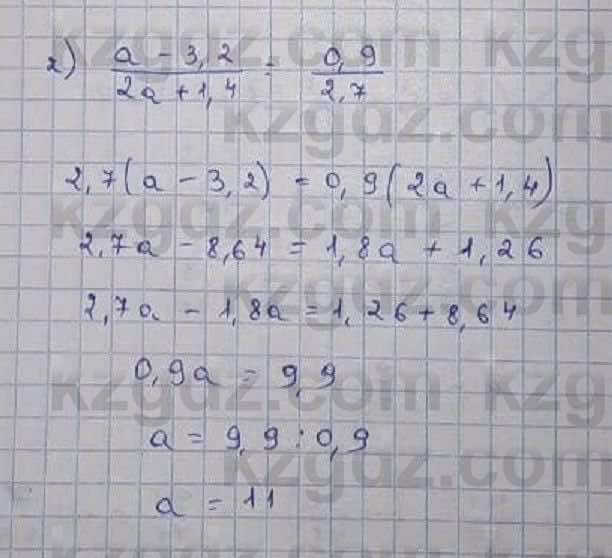 г) a - 3,2 / 2a + 1,4 = 0,9 / 2,7
2,7(a - 3,2) = 0,9(2a + 1,4)
2,7a - 8,64 = 1,8a + 1,26
2,7a - 1,8a = 1,26 + 8,64
0,9a = 9,9
a = 9,9 : 0,9
a = 11
kzgdz.com